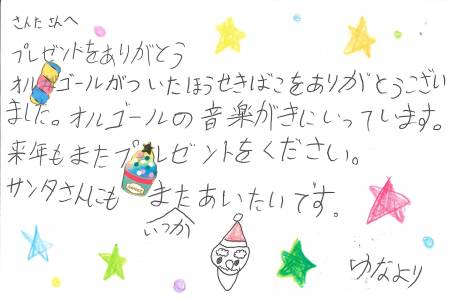 さんたさんへ
プレゼンドをありがとう
オルゴールがついたほうせきばこをありがとうござい
ました。オルゴールの音楽がきにいっています。
来年もまたプルゼントをください。
サンタさんにもいつかまたあいたいです。
ゆなより